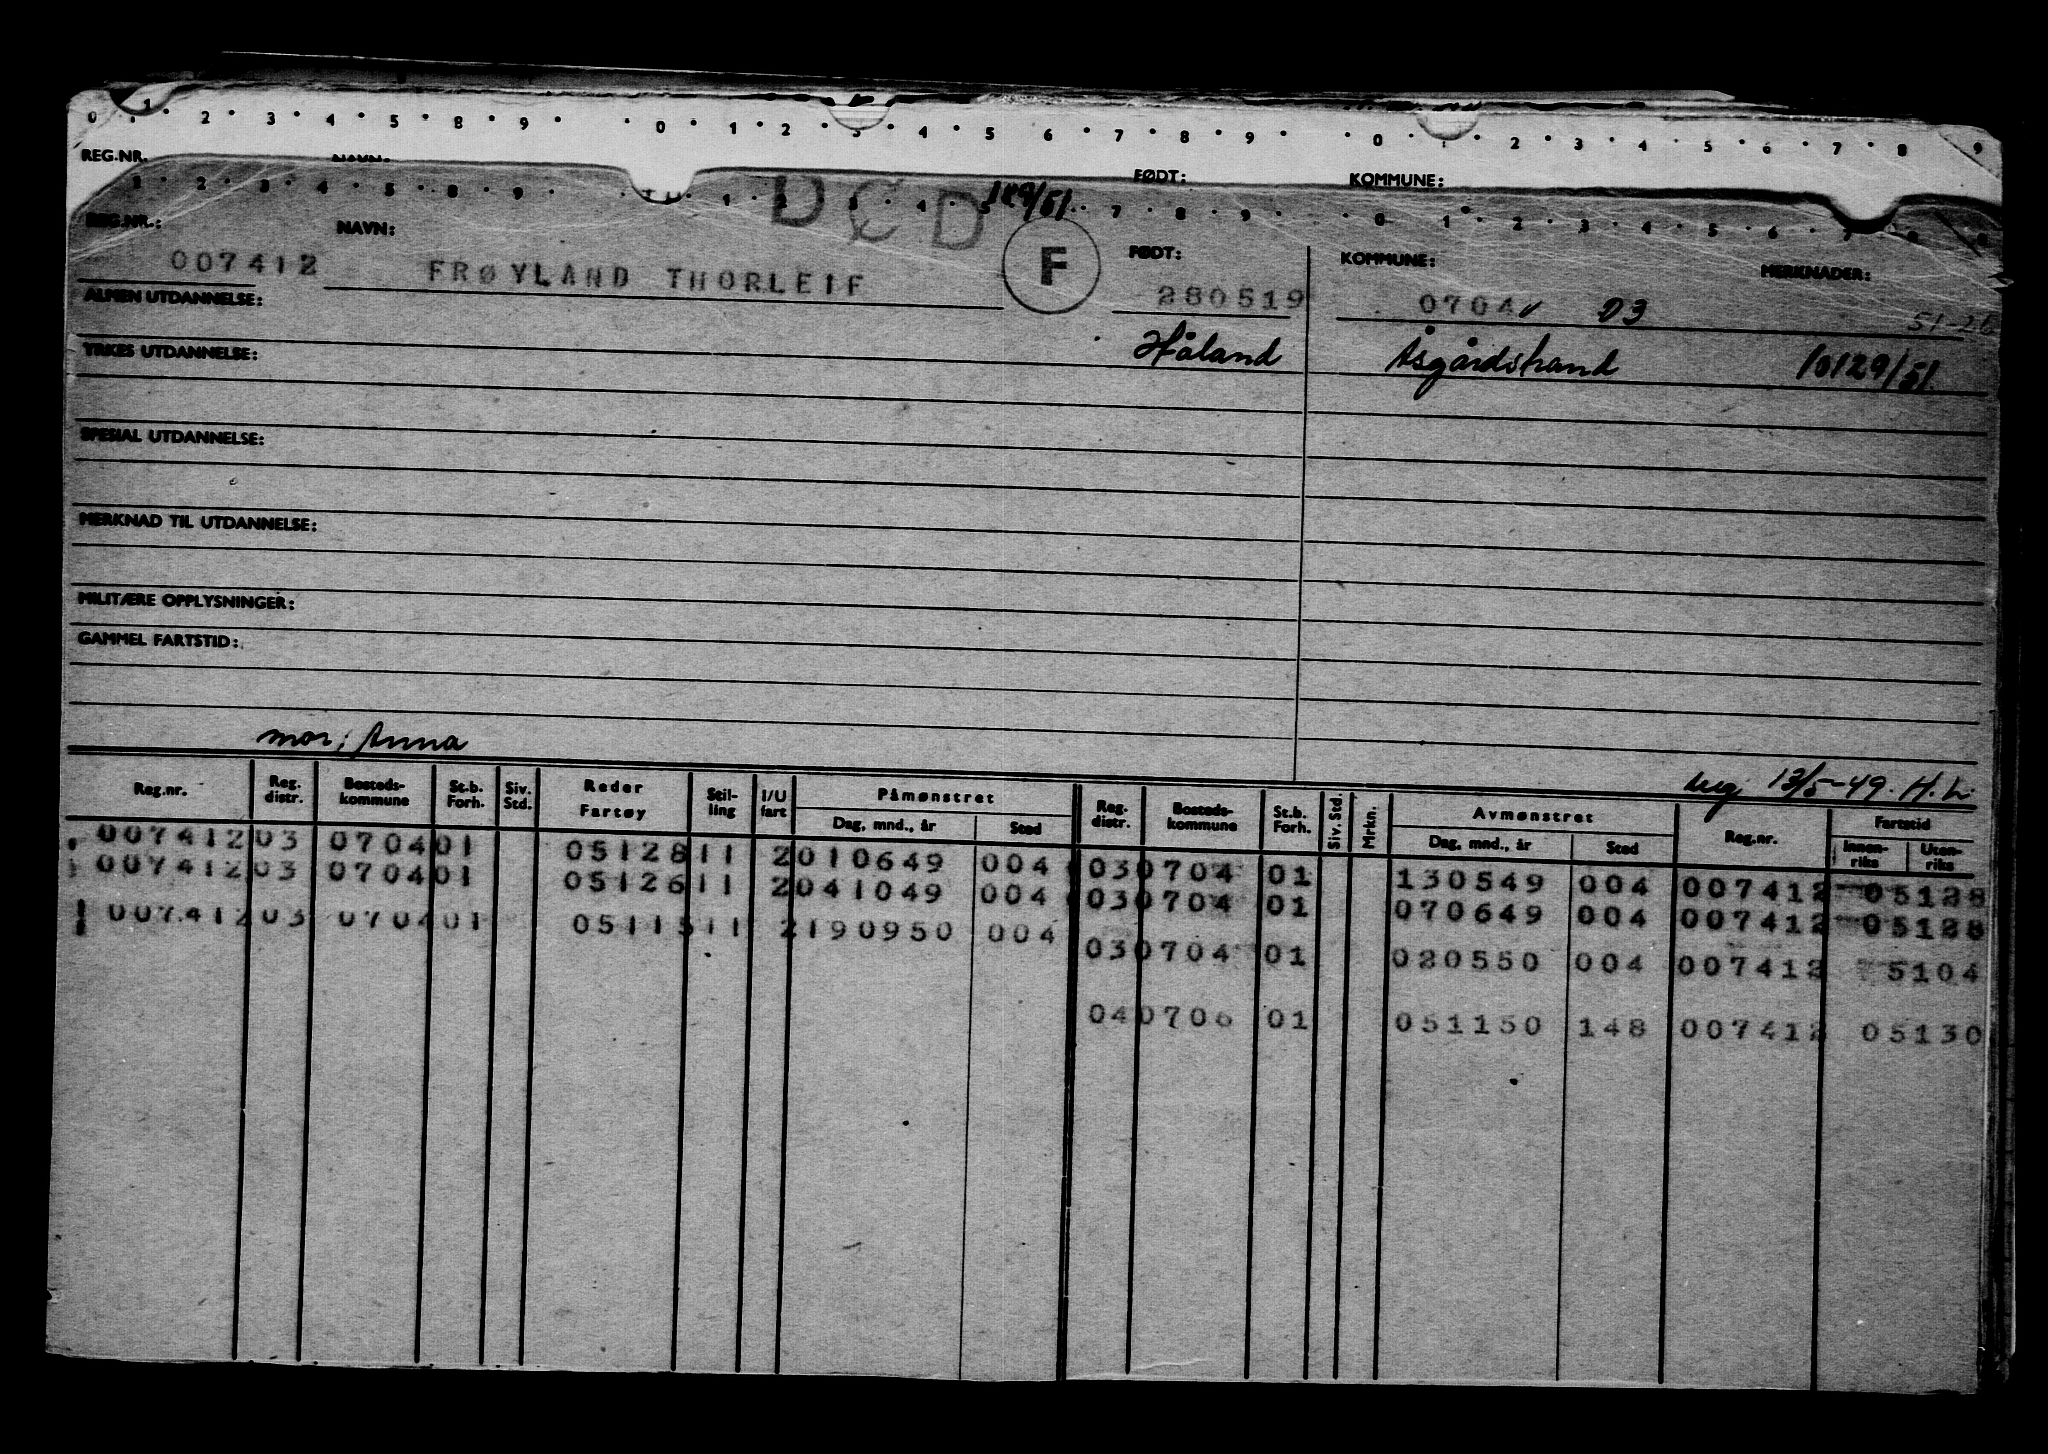 0 1 2 3 4 5 8 9 0 1 2 3 4 5 6 7 8 9 0 1 2 3 4 5 6 7 8 9
REG.NR. NAVN: FØDT: KOMMUNE:
1 2 3 4 5 8 9 1 2 3 4 5 7 8 9 0 1 2 3 4 5 6 7 8
DØD 129/51
REG.NR.: NAVN: FØDT: KOMMUNE: MERKNADER:
007412 FRØYLAND THORLEIF F 280519 0704 03 51-26
ALMEN UTDANNELSE:
Håland Åsgårdstrand 10129/51
YRKES UTDANNELSE:
SPESIAL UTDANNELSE:
MERKNAD TIL UTDANNELSE:
MILITÆRE OPPLYSNINGER:
GAMMEL FARTSTID:
mor; Anna
13/5-49. H.L.
Reg.nr. Reg. distr. Bosteds-kommune St.b. Forh. Siv. Std. Reder Fartøy Stil-ling I/U fart Påmønstret Dag, mnd., år Sted Reg. distr. Bosteds-kommune St.b. Forh. Siv. Std. Mrkn. Avmønstret Dag, mnd., år Sted Reg.nr. Fartstid Innen-riks Uten-riks
007412 03 0704 01 05128 11 2 010649 004 03 0704 01 130549 004 007412 05128
007412 03 0704 01 05126 11 2 041049 004 03 0704 01 070649 004 007412 05128
007412 03 0704 01 05115 11 2 190950 004 03 0704 01 020550 004 007412 5104
04 0706 01 051150 148 007412 05130